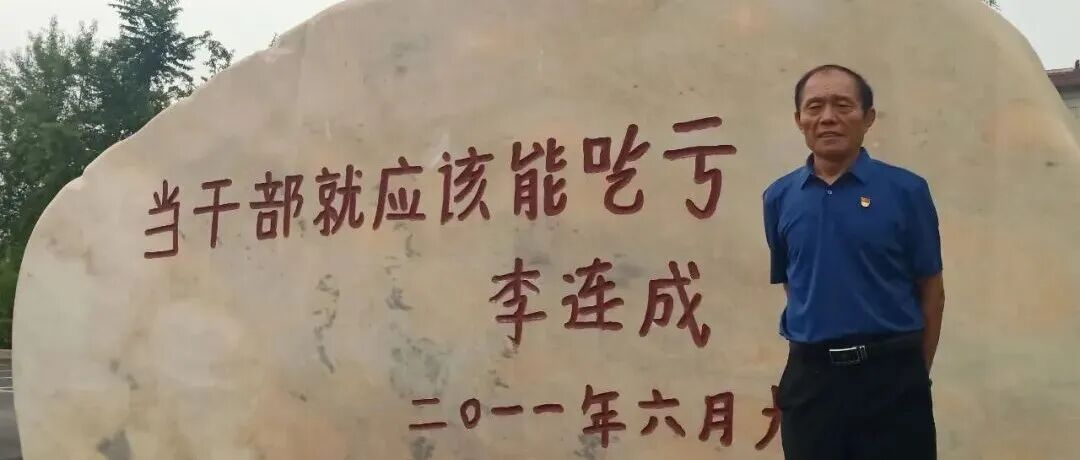 当干部就应该能吃亏
李连成
二〇一一年六月